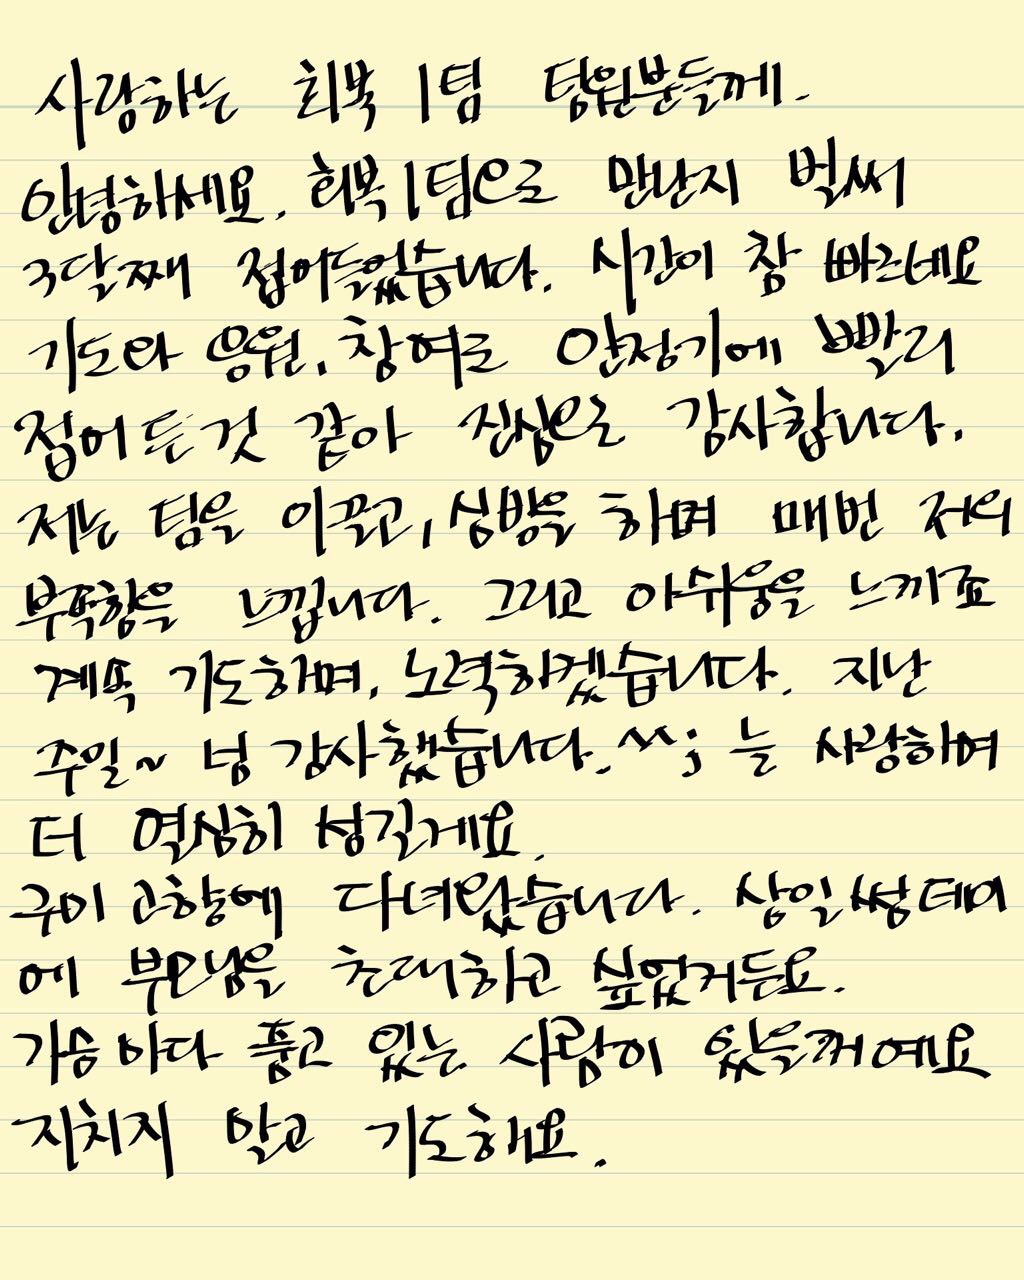 사랑하는 회복 1팀 팀원분들께.
안녕하세요. 회복 1팀으로 만난지 벌써
3달째 접어들었습니다. 시간이 참 빠르네요
기도와 응원, 참여로 안정기에 빨리
접어든것 같아 진심으로 감사합니다.
저는 팀을 이끌고, 심방을 하며 매번 저의
부족함을 느낍니다. 그리고 아쉬움을 느끼죠
계속 기도하며, 노력하겠습니다. 지난
주일~ 넘 감사했습니다. ^^; 늘 사랑하며
더 열심히 섬길게요.
구미 고향에 다녀왔습니다. 삼일 썸데이
에 부모님을 초대하고 싶었거든요.
가슴마다 품고 있는 사람이 있을꺼예요
지치지 말고 기도해요.